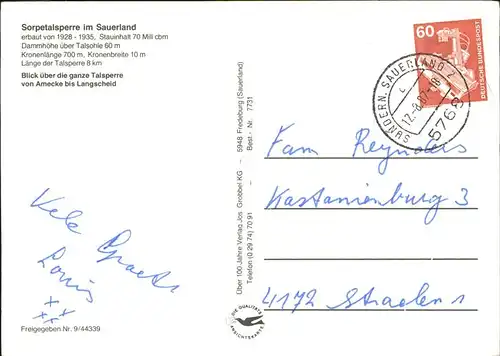 Sorpetalsperre im Sauerland
erbaut von 1928 - 1935, Stauinhalt 70 Mill cbm
Dammhöhe über Talsohle 60 m
Kronenlänge 700 m, Kronenbreite 10 m
Länge der Talsperre 8 km
Blick über die ganze Talsperre
von Amecke bis Langscheid
Vele Groeten
Louis
xxx
Freigegeben Nr. 9/44339
Über 100 Jahre Verlag Jos. Grobbel KG - 5948 Fredeburg (Sauerland)
Telefon (0 29 74) 70 91 - Best.-Nr. 7731
DIE QUALITÄTS
ANSICHTSKARTE
60
DEUTSCHE BUNDESPOST
SUNDERN, SAUERLAND 2
c
12.-8.87-18
5768
Fam Reynders
Kastanienburg 3
4172 Straelen 1